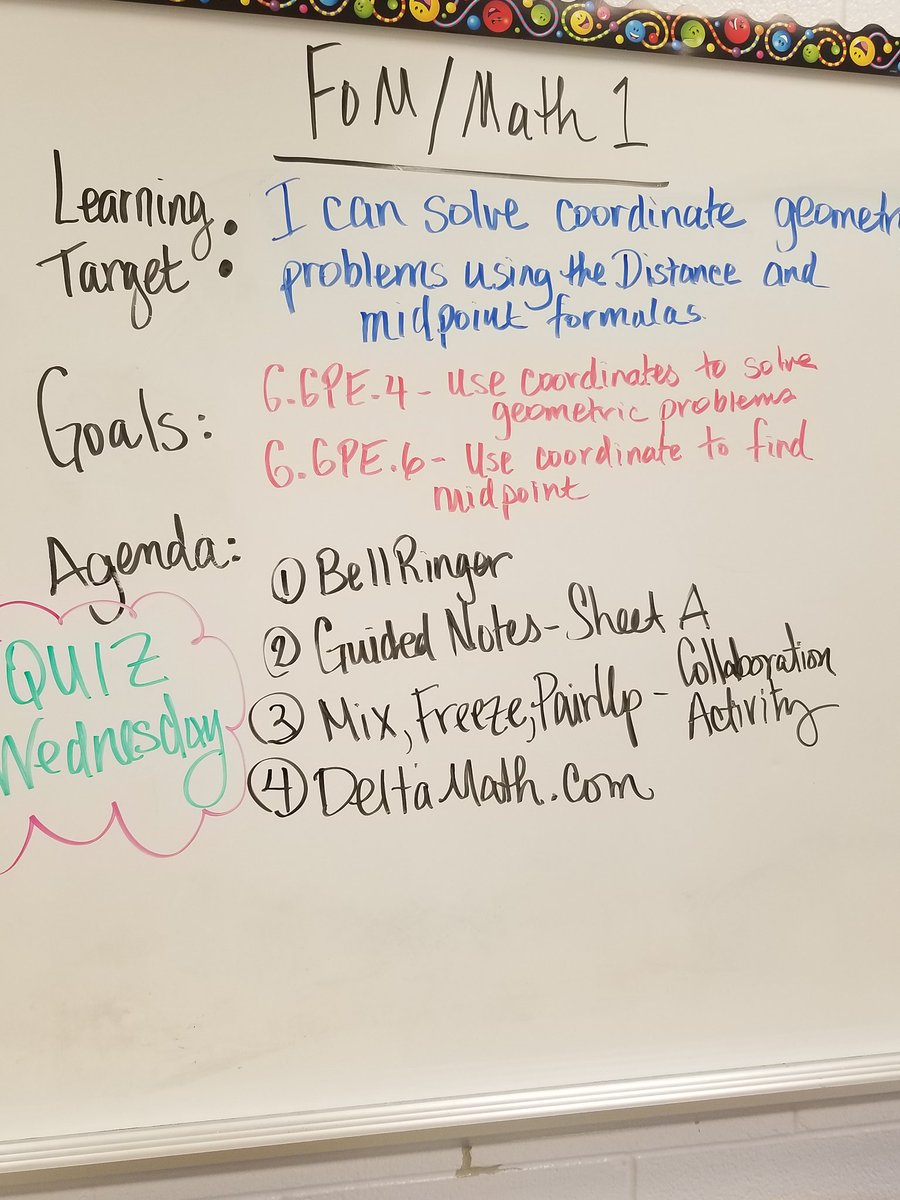 FOM/Math 1
Learning Target: I can solve coordinate geometr
problems using the Distance and
midpoint formulas.
Goals: G.GPE.4 - Use coordinates to solve
geometric problems
G.GPE.6 - Use coordinate to find
midpoint
Agenda:
① BellRinger
② Guided Notes - Sheet A
③ Mix, Freeze, PairUp - Collaboration Activity
④ DeltaMath.com
QUIZ
Wednesday